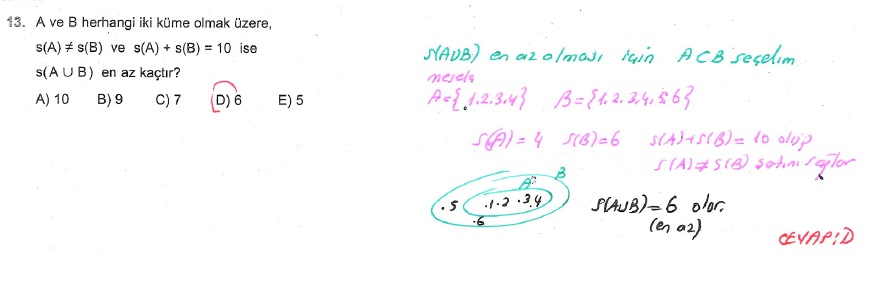 13. A ve B herhangi iki küme olmak üzere,
s(A) ≠ s(B) ve s(A) + s(B) = 10 ise
s(A ∪ B) en az kaçtır?
A) 10 B) 9 C) 7 D) 6 E) 5
s(A∪B) en az olması için A⊂B seçelim
mesela
A={1.2.3.4} B={1.2.3.4.5.6}
s(A)=4 s(B)=6 s(A)+s(B)=10 olup
s(A)≠s(B) şartını sağlar
A B
.5 .1.2 .3.4
.6
s(A∪B)=6 olur.
(en az)
CEVAP:D